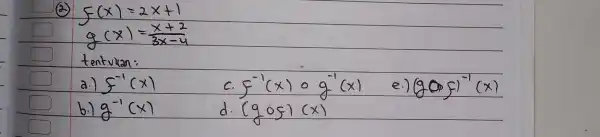 ② f(x) = 2x+1
g(x) = x+2/3x-4
tentukan:
a.) f⁻¹(x) c. f⁻¹(x) o g⁻¹(x) e.) (g o f)⁻¹(x)
b.) g⁻¹(x) d. (g o f)(x)